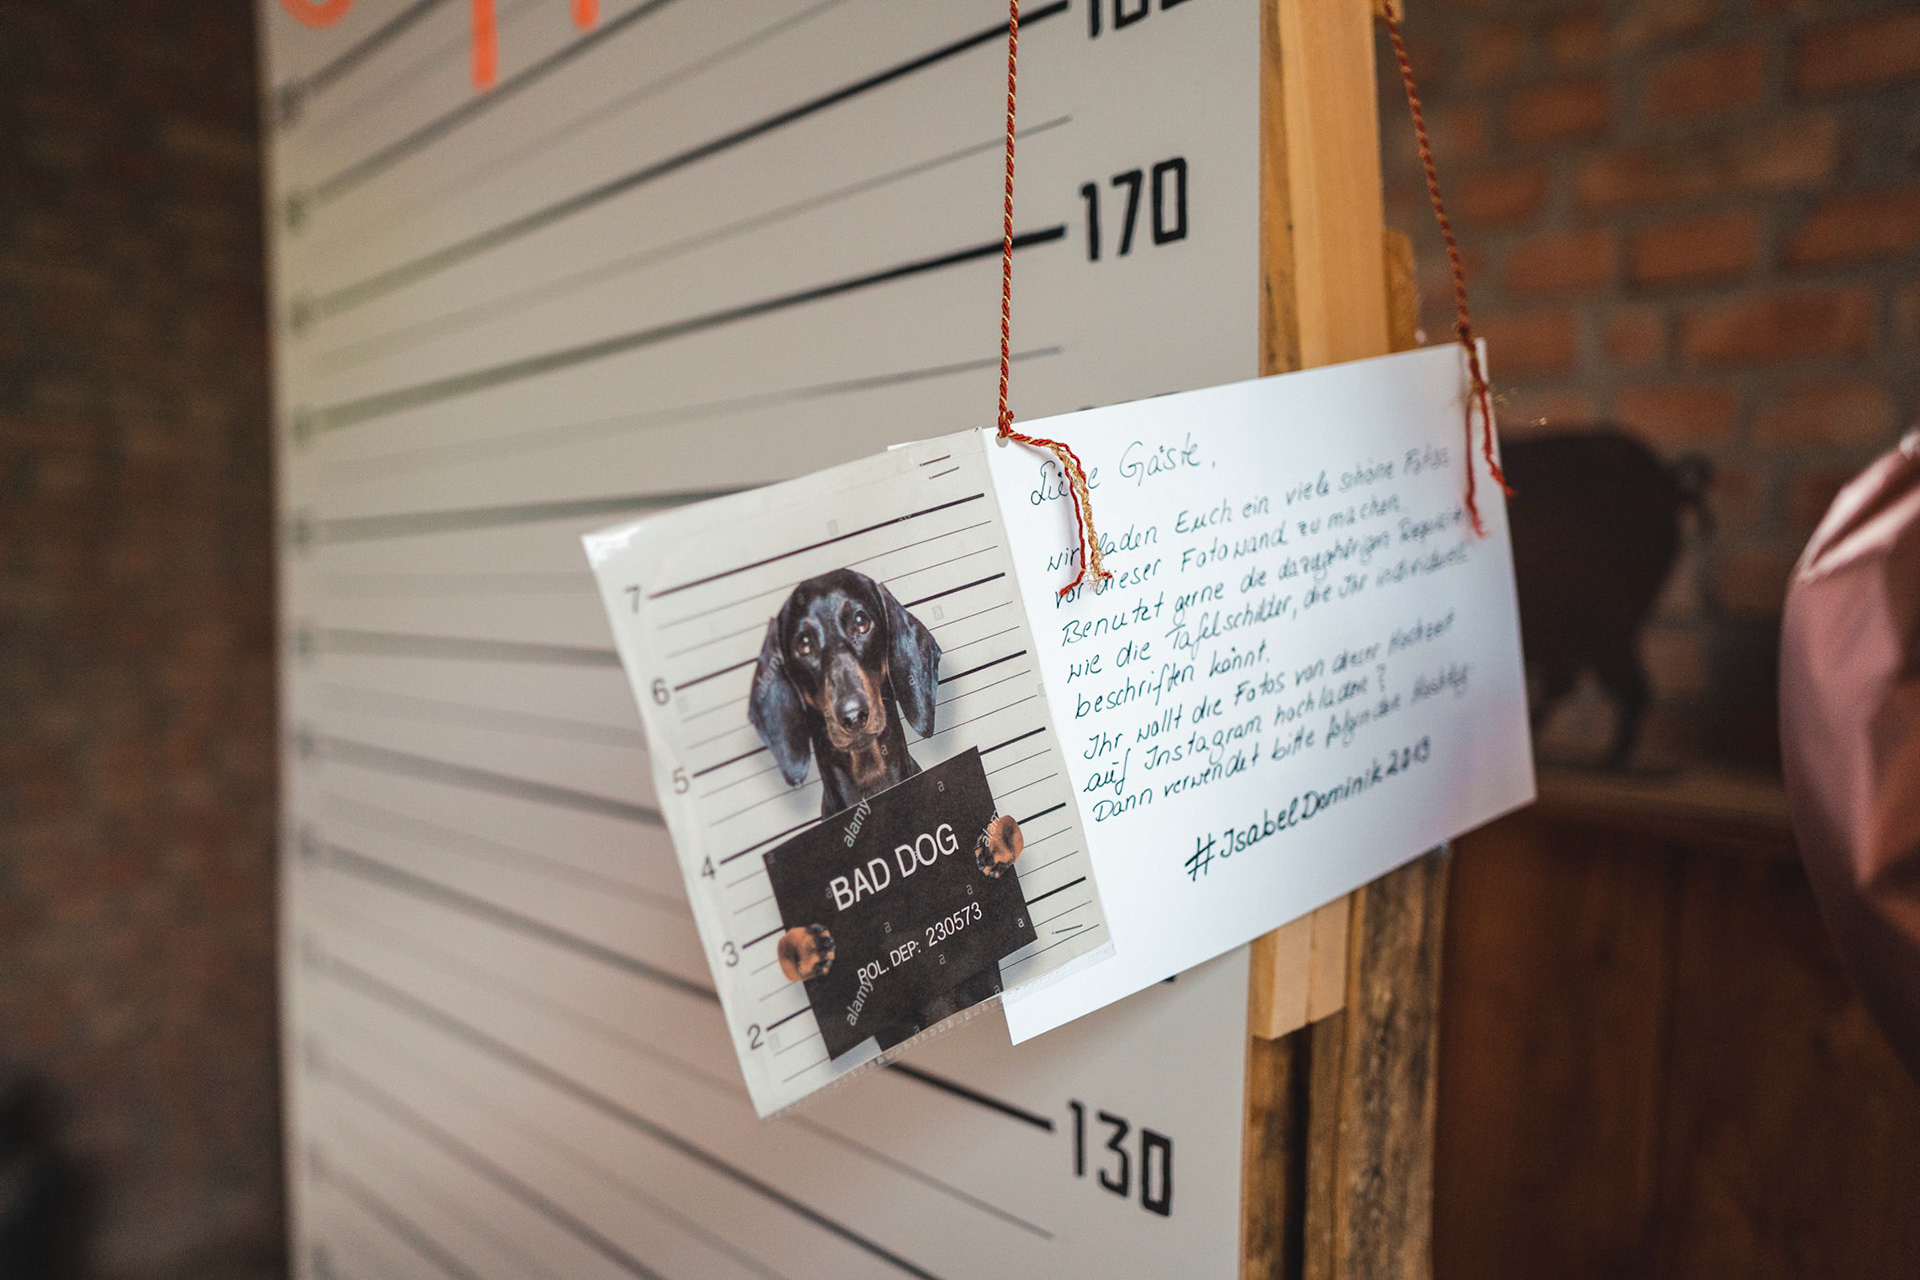 170
130
7
6
5
4
3
2
BAD DOG
POL. DEP: 230573
alamy
alamy
Liebe Gäste,
wir laden Euch ein viele schöne Fotos
vor dieser Fotowand zu machen.
Benutzt gerne die dazugehörigen
wie die Tafelschilder, die Ihr individuell
beschriften könnt.
Ihr wollt die Fotos von dieser Hochzeit
auf Instagram hochladen?
Dann verwendet bitte folgenden Hashtag:
#IsabelDominik2019